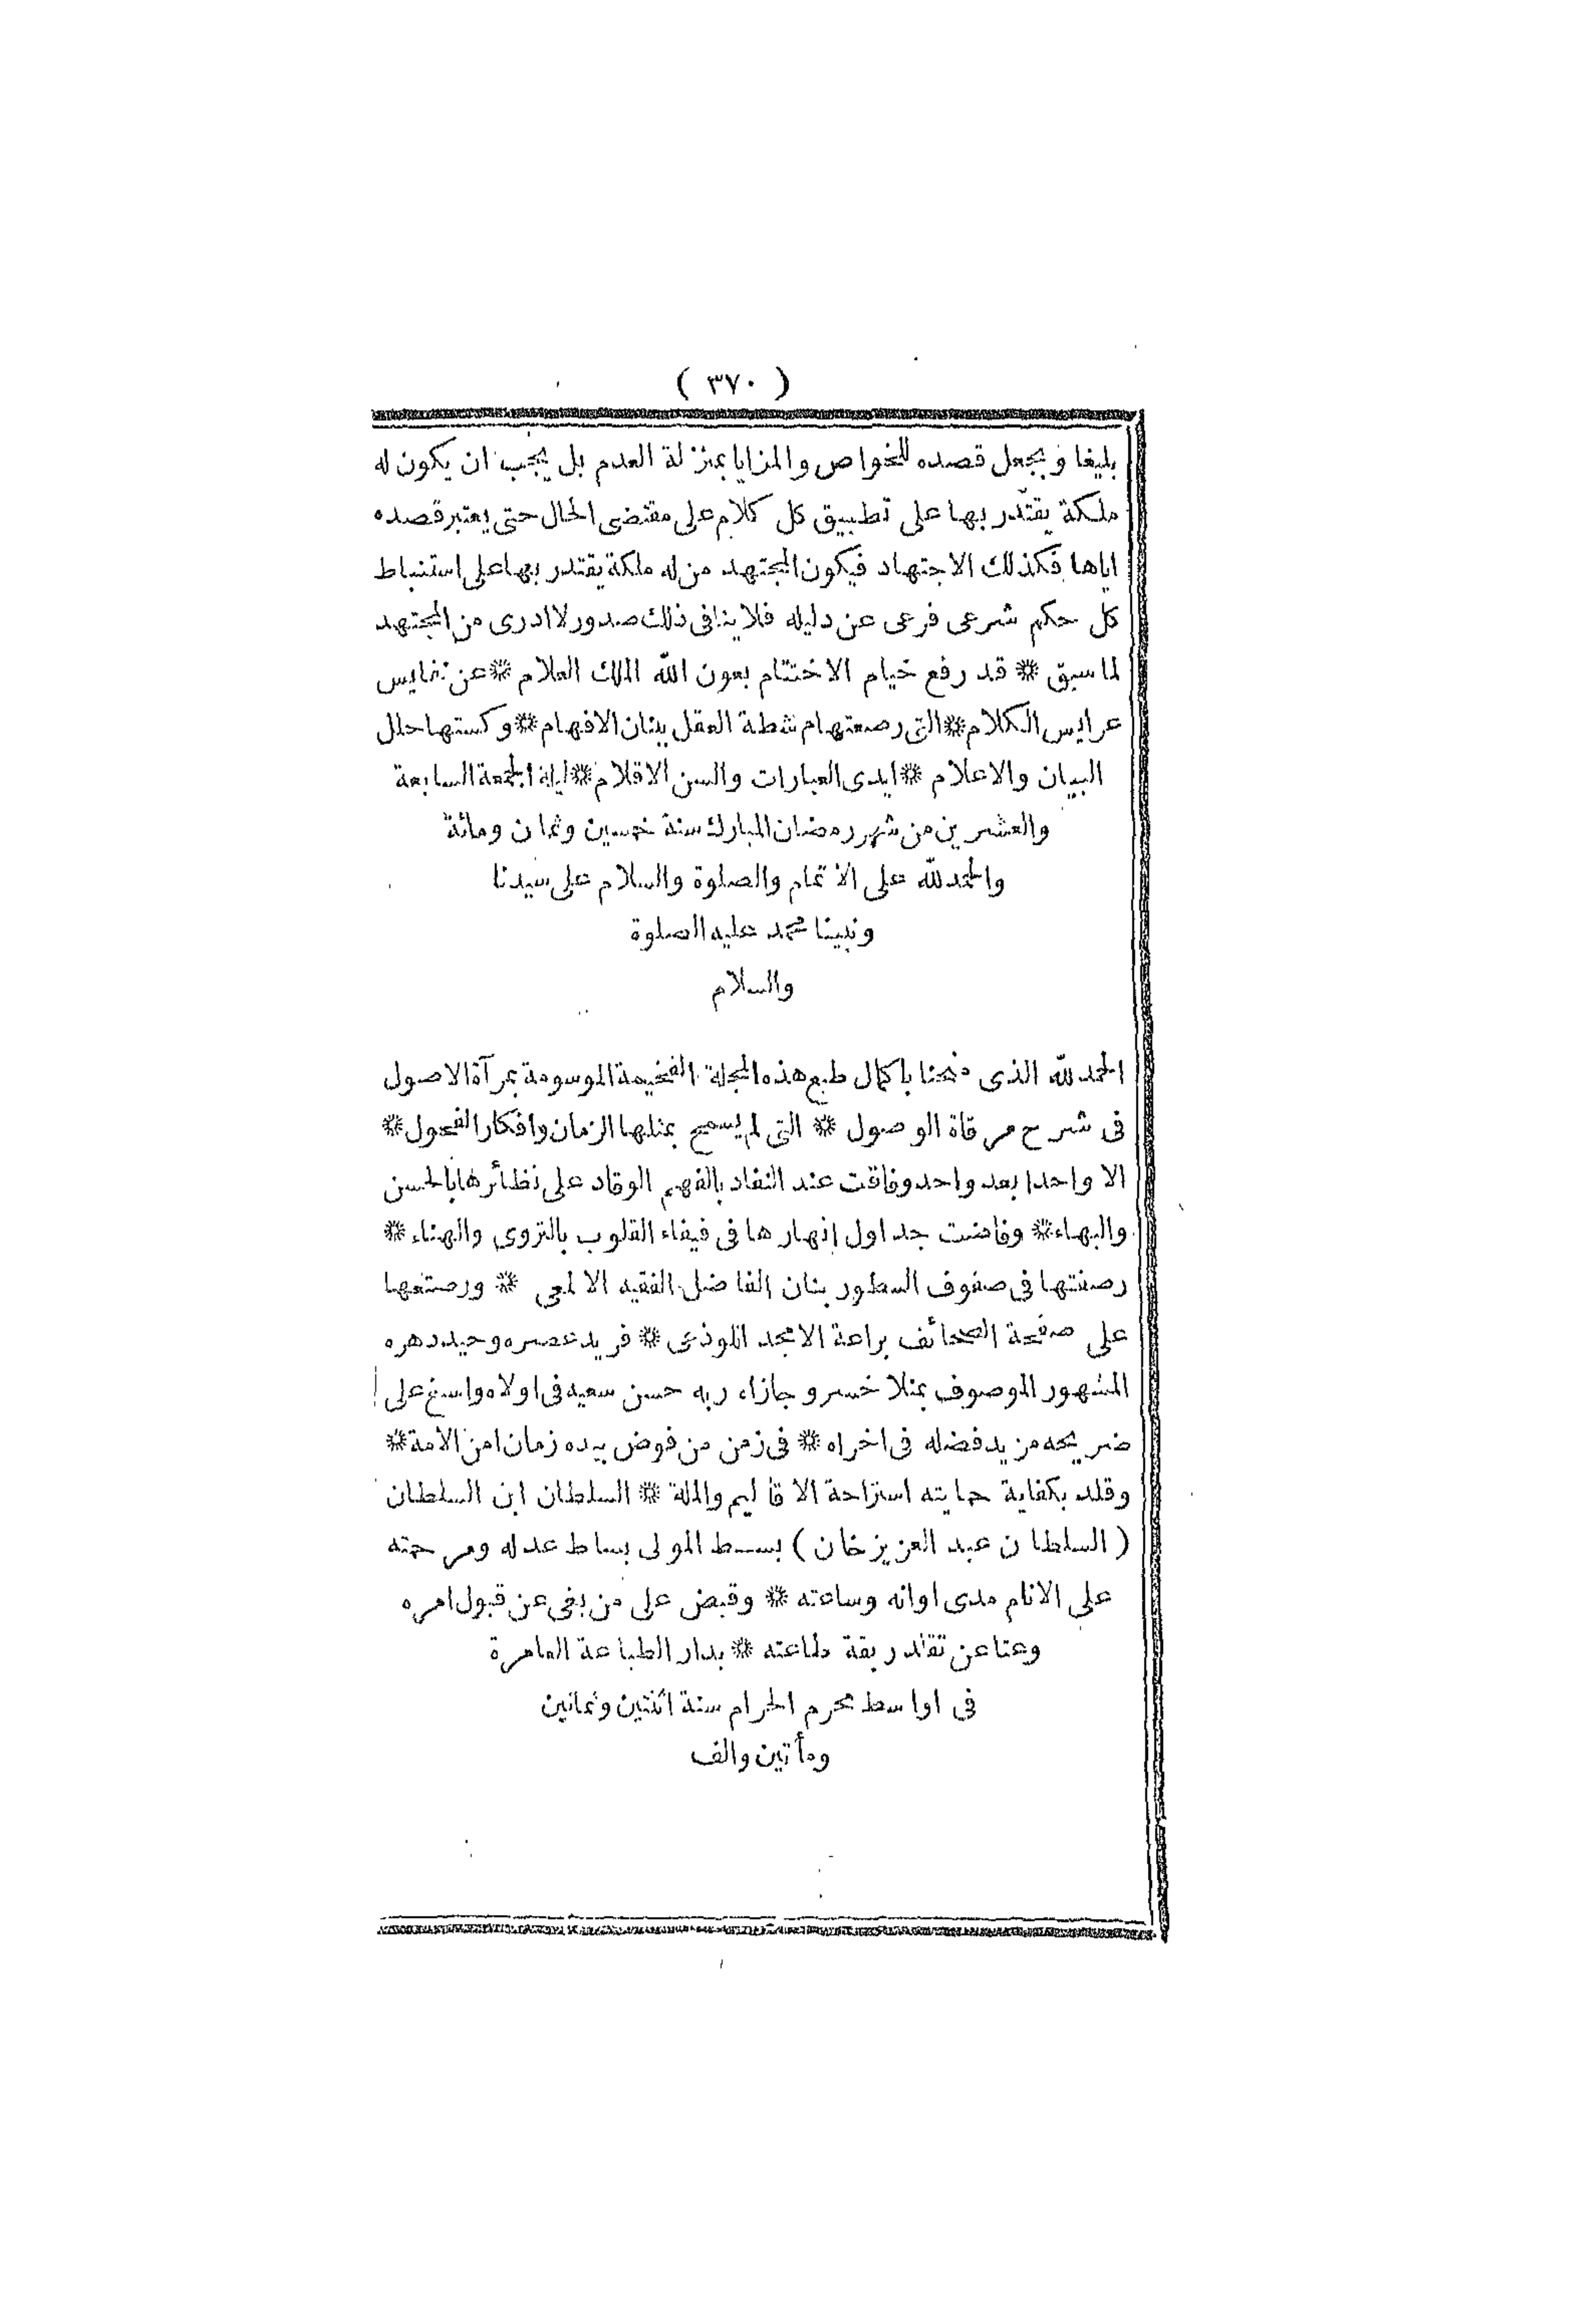 ( ٣٧٠ )
بليغا ويجعل قصده للخواص والمزايا بمنزلة العدم بل يجب ان يكون له
ملكة يقتدر بها على تطبيق كل كلام على مقتضى الحال حتى يعتبر قصده
اياها فكذلك الاجتهاد فيكون المجتهد من له ملكة يقتدر بها على استنباط
كل حكم شرعى فرعى عن دليله فلا ينافى ذلك صدور لا ادرى من المجتهد
لما سبق * قد رفع خيام الاختتام بعون الله الملك العلام * عن نفايس
عرايس الكلام * التى رصعتها مشطة العقل ببنان الافهام * وكستها حلل
البيان والاعلام * ايدى العبارات والسن الاقلام * ليلة الجمعة السابعة
والعشرين من شهر رمضان المبارك سنة خمسين وثمان ومائة
والحمد لله على الاتمام والصلوة والسلام على سيدنا
ونبينا محمد عليه الصلوة
والسلام
الحمد لله الذى منحنا باكمال طبع هذه المجلة الفخيمة الموسومة بمرآة الاصول
فى شرح مرقاة الوصول * التى لم يسمح بمثلها الزمان وافكار الفحول *
الا واحدا بعد واحد وفاقت عند النقاد بالفهم الوقاد على نظائرها بالحسن
والبهاء * وفاضت جداول انهارها فى فيفاء القلوب بالتروى والهناء *
رصفتها فى صفوف السطور بنان الفاضل الفقيه الالمعى * ورصعتها
على صفحة الصحائف براعة الامجد اللوذعى * فريد عصره وحيد دهره
المشهور الموصوف بمنلا خسرو جازاه ربه حسن سعيه فى اولاه واسبغ على
ضريحه مزيد فضله فى اخراه * فى زمن من فوض بيده زمان امن الامة *
وقلد بكفاية حمايته استراحة الاقاليم والملة * السلطان ابن السلطان
( السلطان عبد العزيز خان ) بسط المولى بساط عدله ومرحمته
على الانام مدى اوانه وساعته * وقبض على من بغى عن قبول امره
وعتا عن تقلد ربقة طاعته * بدار الطباعة العامرة
فى اواسط محرم الحرام سنة اثنتين وثمانين
ومأتين والف